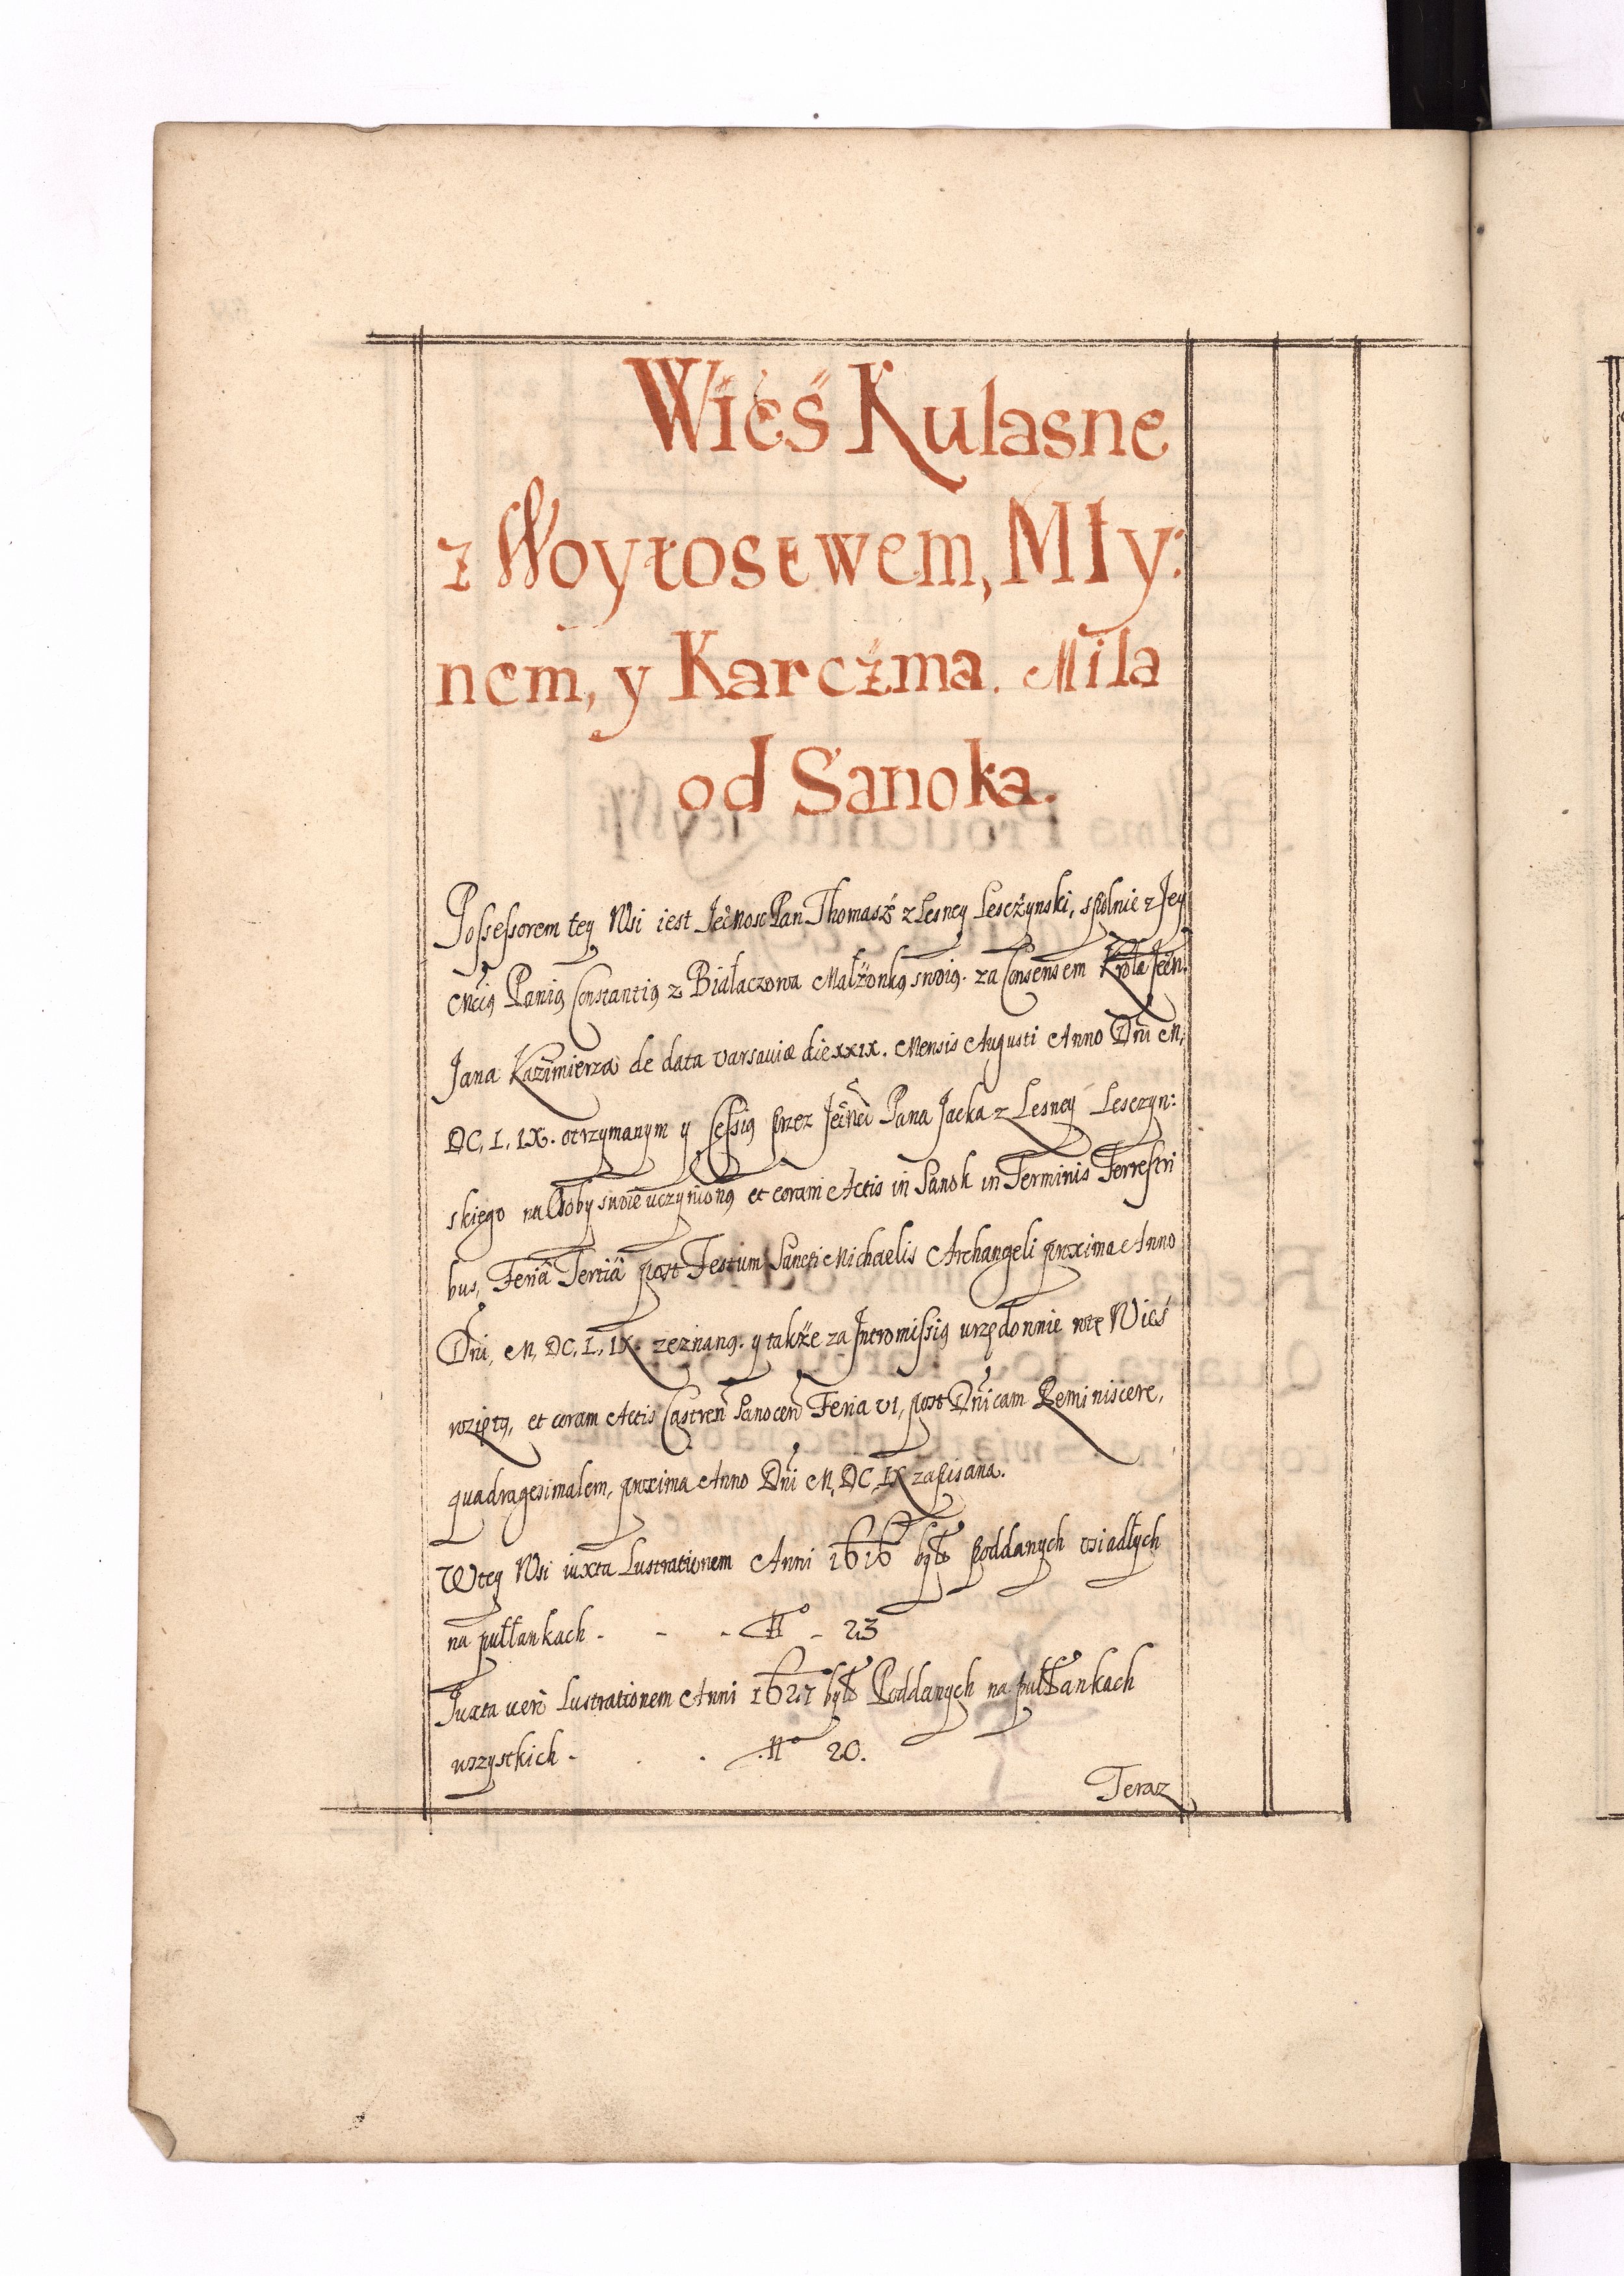 Wieś Kulasne
z Woytostwem, Mły:
nem, y Karczma. Mila
od Sanoka.
Possessorem tey Wsi iest Jeo͠Mosc Pan Thomasz z Lesney Lesczynski, spolnie z Jey
Mcią Panią Constantią z Białaczowa Małżonką swoią. za Consensem Krola Jeo͠M.
Jana Kazimierza de data Varsauiæ die XXIX. Mensis Augusti Anno Dn͠i M,
DC, L, IX. otrzymanym y Cessią przez Jeo͠Mci Pana Jacka z Lesney Lesczyn:
skiego na Osoby swoie uczynioną et coram Actis in Sanok in Terminis Terrestri
bus, Feriâ Tertiâ post Festum Sancti Michaelis Archangeli proxima Anno
Dn͠i, M, DC, L, IX. zeznaną. y także za Intromissią urzędownie w tę Wieś
wziętą, et coram Actis Castren͠ Sanocen͠ Feria VI, post Dn͠icam Reminiscere,
quadragesimalem, proxima Anno Dn͠i M, DC, LX zapisana.
W tey Wsi iuxta Lustrationem Anni 1616 było Poddanych osiadłych
na pułłankach - - - No - 23
Juxta verò Lustrationem Anni 1627 było Poddanych na pułłankach
wszystkich - . . No 20.
Teraz